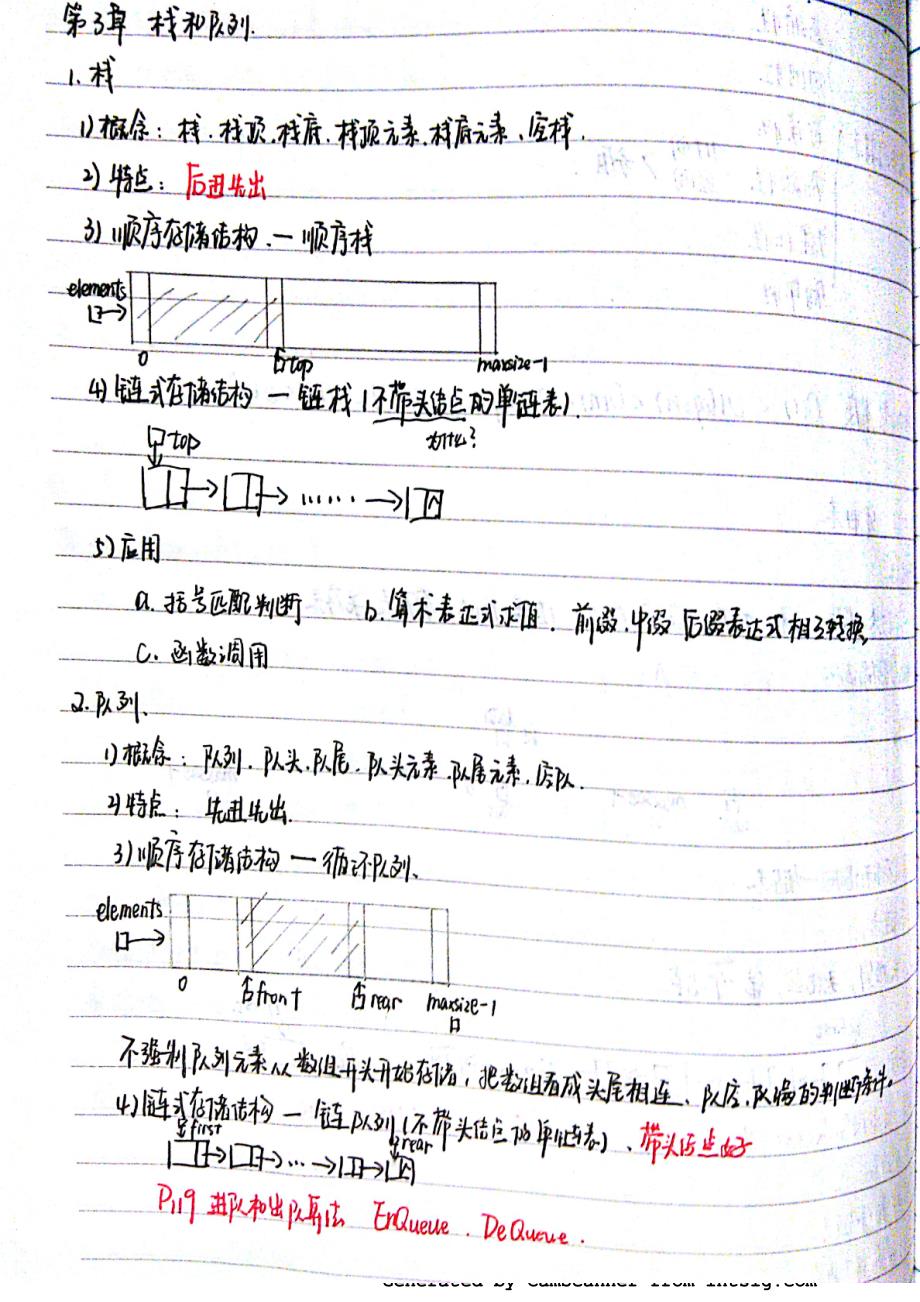 第3章 栈和队列.
1. 栈
1) 概念: 栈、栈顶、栈底、栈顶元素、栈底元素、空栈.
2) 特点: 后进先出
3) 顺序存储结构、— 顺序栈
elements
0 top maxsize-1
4) 链式存储结构 — 链栈 (不带头结点的单链表).
为什么?
top
......
5) 应用
a. 括号匹配判断 b. 算术表达式求值. 前缀、中缀 后缀表达式相互转换
c. 函数调用
2. 队列、
1) 概念: 队列、队头、队尾、队头元素、队尾元素、空队.
2) 特点: 先进先出.
3) 顺序存储结构 — 循环队列、
elements
0 front rear maxsize-1
不强制队列元素从数组开头开始存储, 把数组看成头尾相连、队空、队满的判断条件。
4) 链式存储结构 — 链队列 (不带头结点的单链表)、带头结点好
first rear
...
P119 进队和出队算法 EnQueue. DeQueue.
Generated by CamScanner from intsig.com